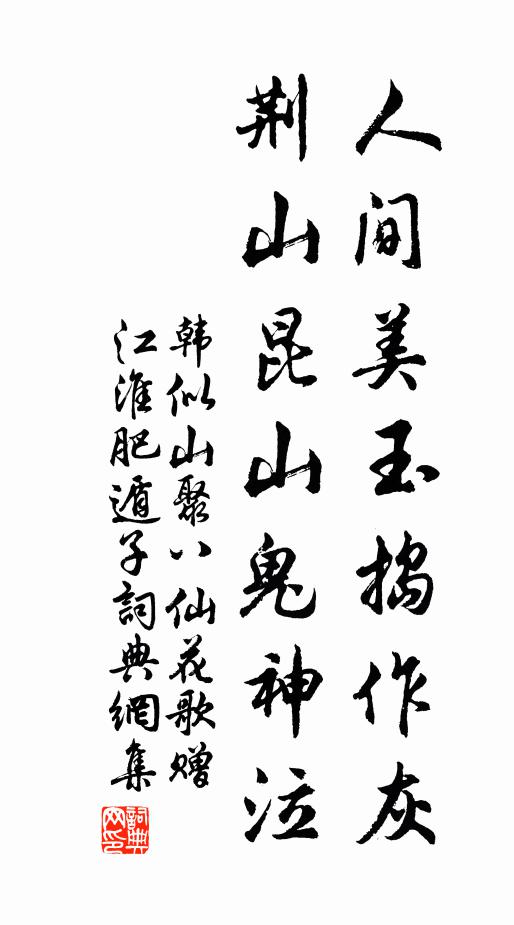 人间美玉捣作灰
荆山昆山鬼神泣
韩似山聚八仙花歌赠
江淮肥遁子詞典網集
詞典
网印